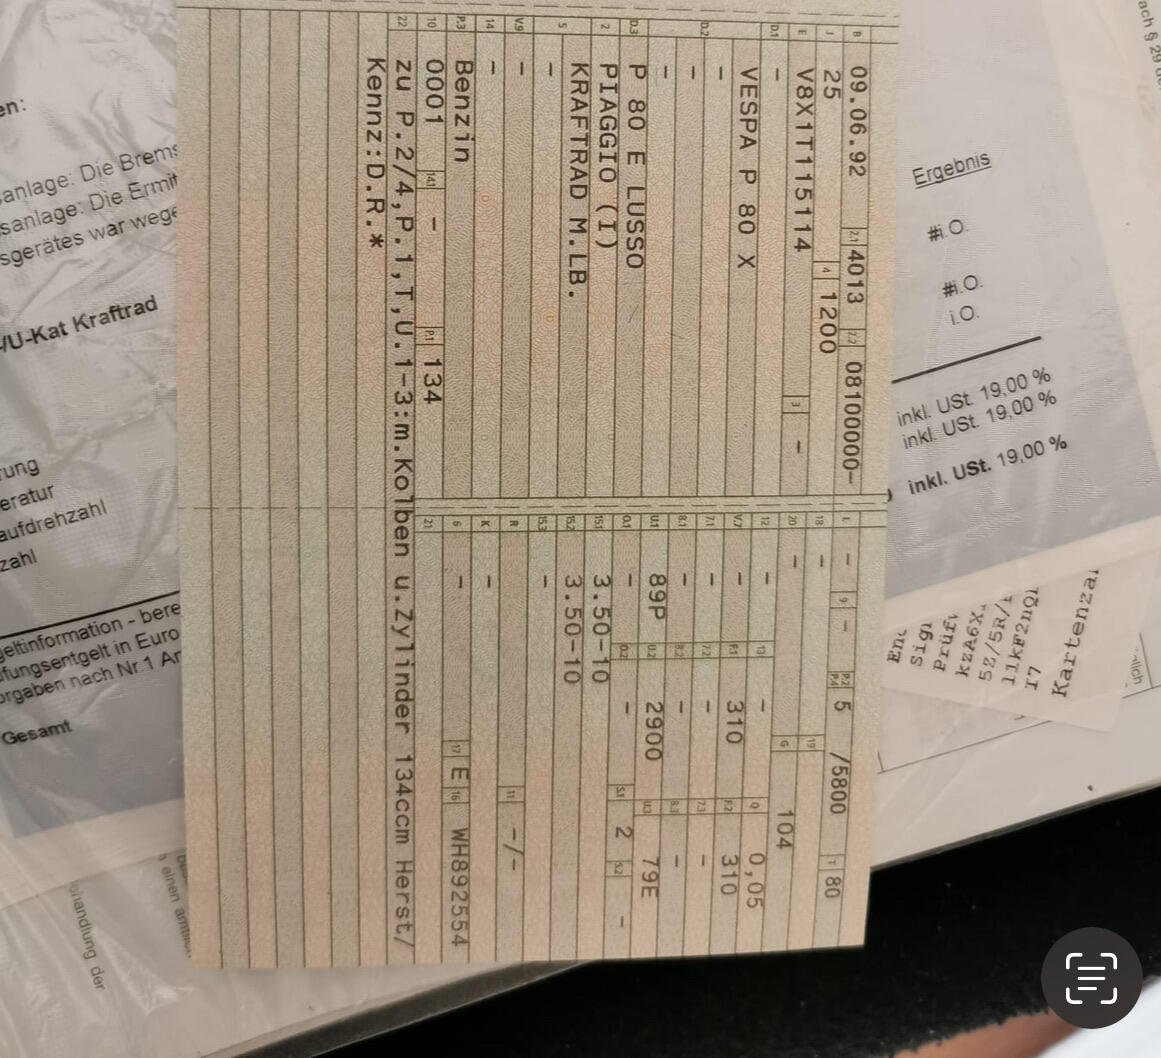 B 09.06.92 2.1 4013 2.2 08100000-
J 25 4 1200
E V8X1T1115114 3 -
D.1 -
VESPA P 80 X
D.2 -
-
-
D.3 P 80 E LUSSO
2 PIAGGIO (I)
5 KRAFTRAD M.LB.
-
V.9 -
14 -
P.3 Benzin
10 0001 14.1 - P.1 134
L - 9 - P.2 P.4 5 /5800 T 80
18 - 19
20 - G 104
12 - 13 - Q 0,05
V.7 - F.1 310 F.2 310
7.1 - 7.2 - 7.3 -
8.1 - 8.2 - 8.3 -
U.1 89P U.2 2900 U.3 79E
O.1 - O.2 - S.1 2 S.2 -
15.1 3.50-10
15.2 3.50-10
15.3 -
R 11 -/-
K -
6 - 17 E 16 WH892554
21
22 zu P.2/4,P.1,T,U.1-3:m.Kolben u.Zylinder 134ccm Herst/
Kennz:D.R.*
en:
sanlage: Die Brems
sanlage: Die Ermit
sgerätes war wege
/U-Kat Kraftrad
rung
eratur
aufdrehzahl
zahl
geltinformation - bere
fungsentgelt in Euro
orgaben nach Nr.1 Ar
Gesamt
Ergebnis
#i.O.
#i.O.
i.O.
inkl. USt. 19,00 %
inkl. USt. 19,00 %
inkl. USt. 19,00 %
ach § 29
Sign
Prüf
kzA6X
5Z/5R/
I7
Kartenza
nlich
einen
handlung der